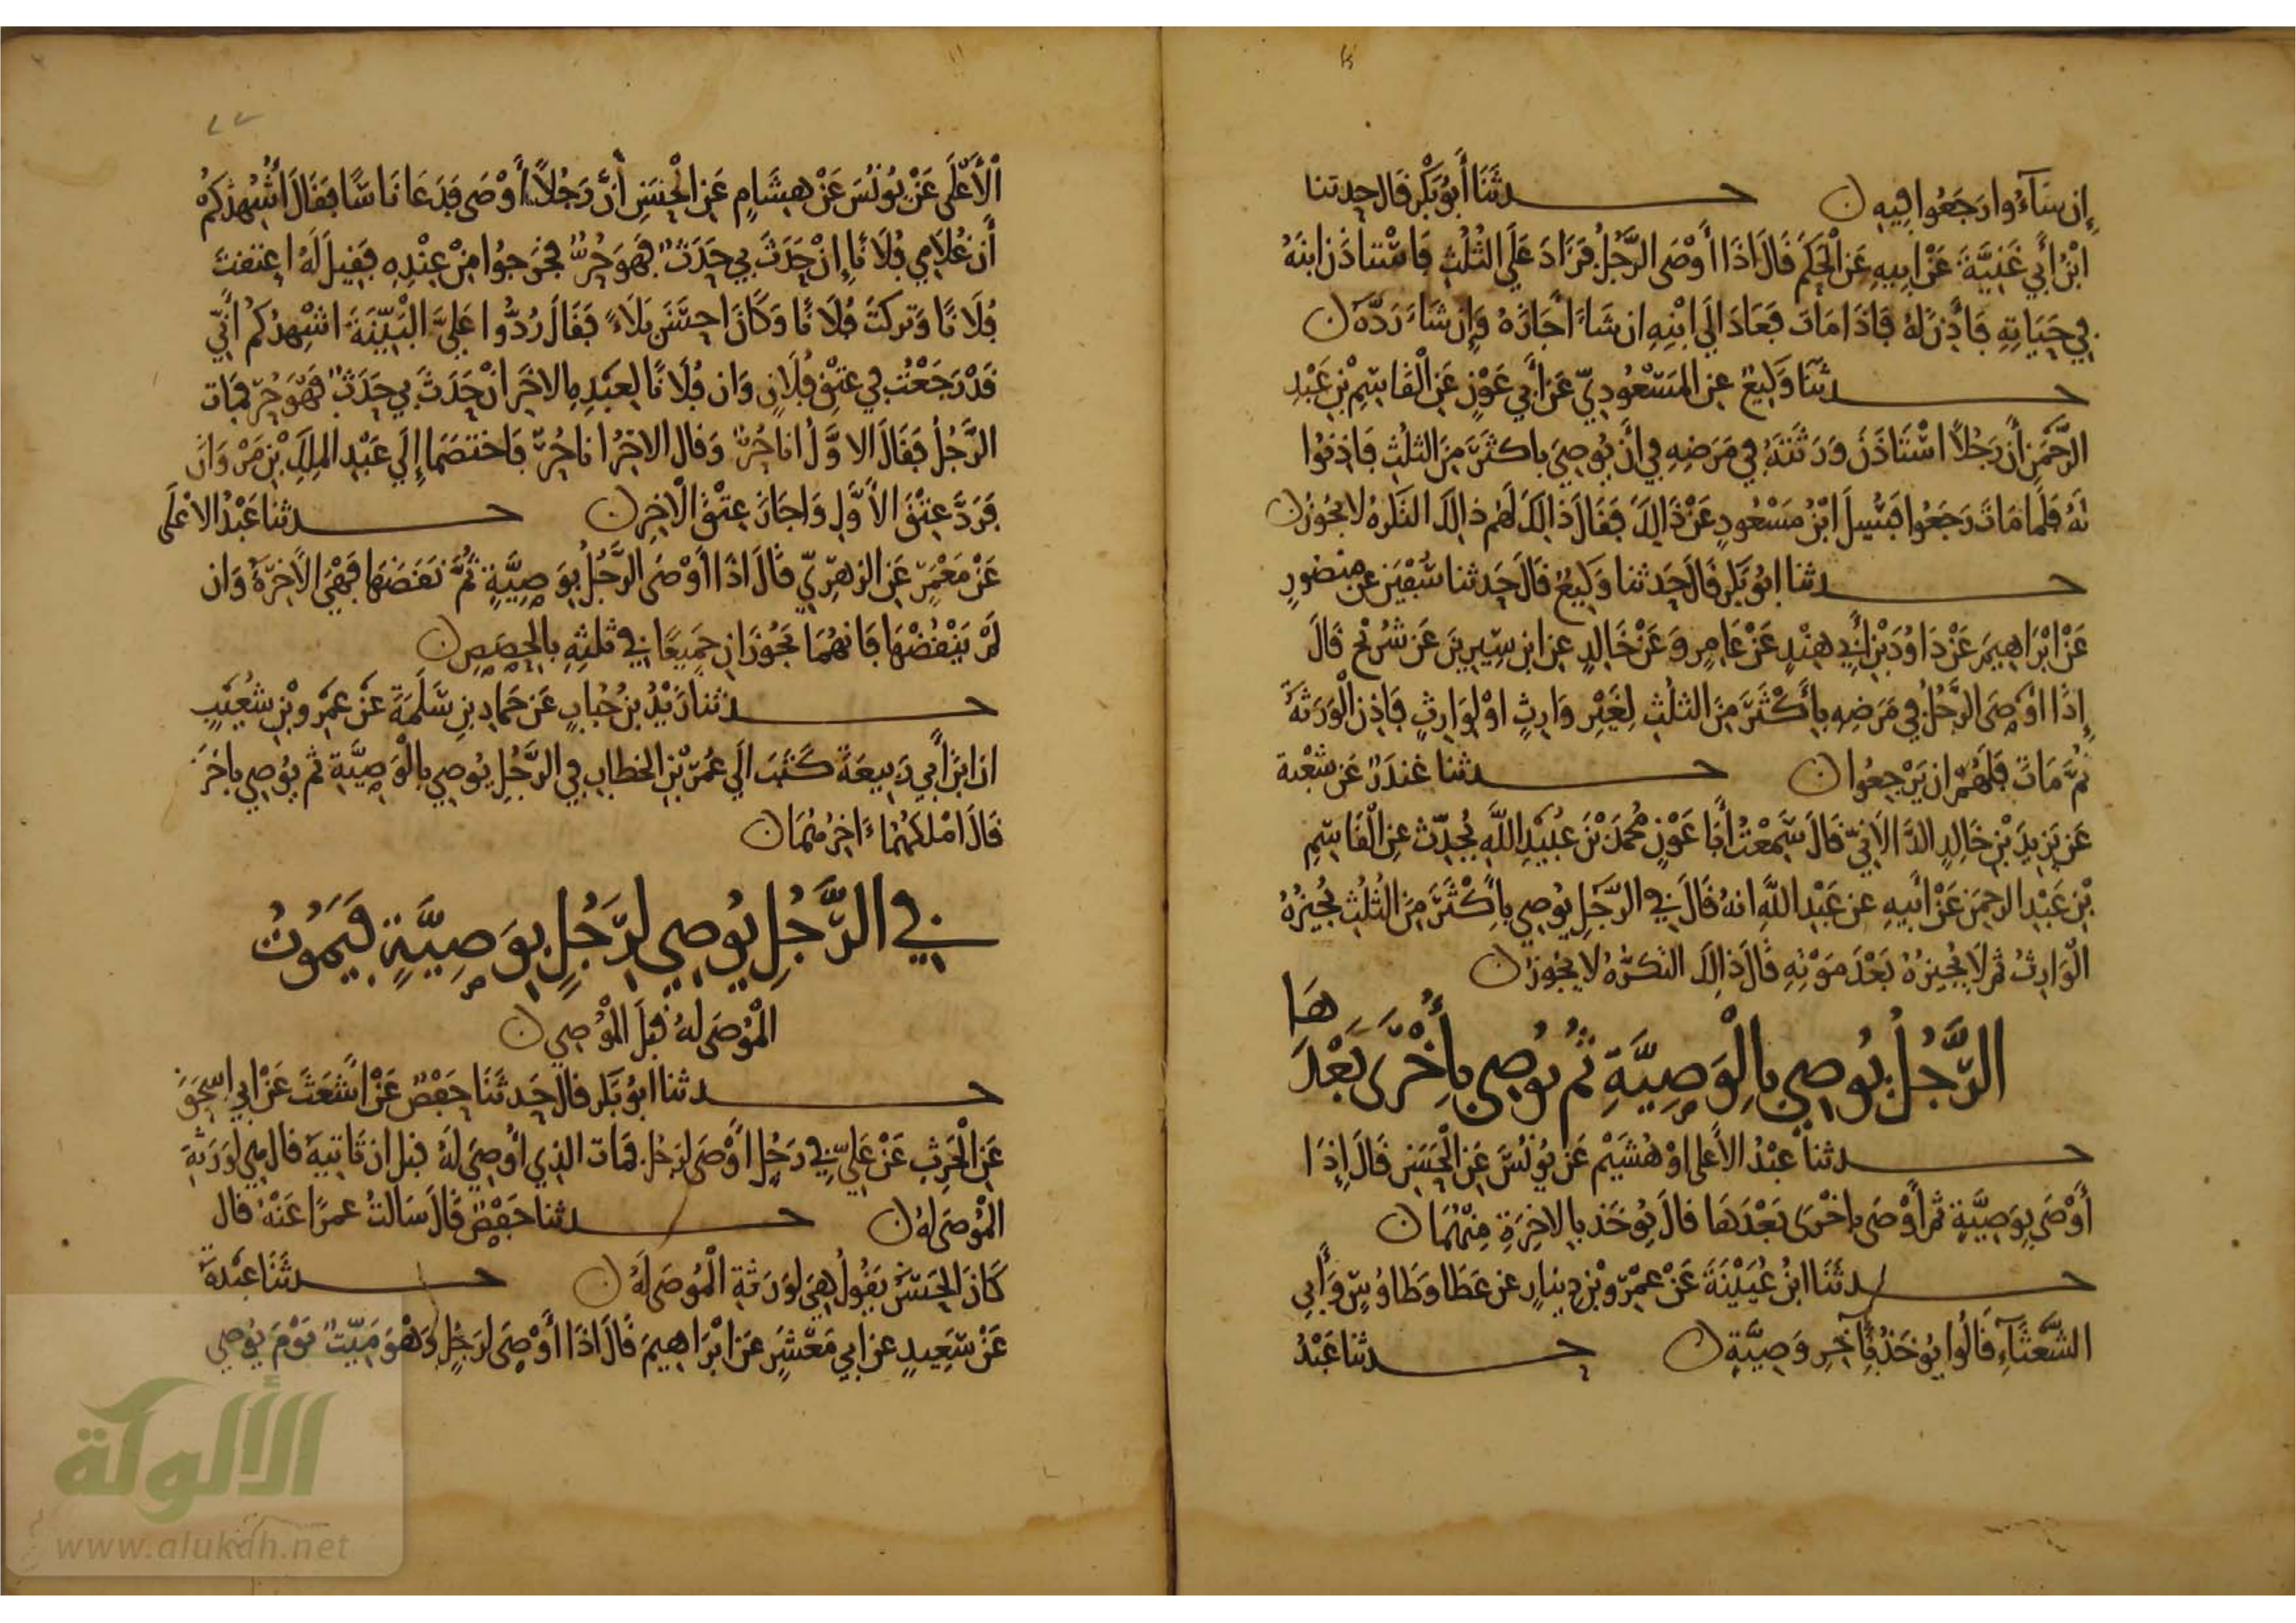 إن شاءوا رجعوا فيه ن حدثنا أبو بكر قال حدثنا
ابن أبي غنية عن أبيه عن الحكم قال اذا أوصى الرجل فزاد على الثلث فاستاذن ابنه
في حياته فأذن له فاذا مات فعاد الي ابنه ان شاء أجازه وإن شاء رده ن
حدثنا وكيع عن المسعودي عن أبي عون عن القاسم بن عبد
الرحمن أن رجلا استاذن ورثته في مرضه في أن يوصي باكثر من الثلث فاذنوا
له فلما مات رجعوا فسيل ابن مسعود عن ذالك فقال ذالك لهم ذالك النكره لا يجوز ن
حدثنا ابو بكر قال حدثنا وكيع قال حدثنا سفين عن منصور
عن ابراهيم عن داود بن أبي هند عن عامر وعن خالد عن ابن سيرين عن شريح قال
إذا اوصى الرجل في مرضه بأكثر من الثلث لغير وارث او لوارث فاذن الورثة
ثم مات فلهم ان يرجعوا ن حدثنا غندر عن شعبة
عن يزيد بن خالد الدالاني قال سمعت أبا عون محمد بن عبيد الله يحدث عن القاسم
بن عبد الرحمن عن أبيه عن عبد الله انه قال في الرجل يوصي بأكثر من الثلث يجيزه
الوارث ثم لا يجيزه بعد موته قال ذالك النكره لا يجوز ن
الرجل يوصي بالوصية ثم يوصي بأخرى بعدها
حدثنا عبد الأعلى او هشيم عن يونس عن الحسن قال إذا
أوصى بوصية ثم أوصى باخرى بعدها قال يوخذ بالاخرة منهما ن
حدثنا ابن عيينة عن عمرو بن دينار عن عطا وطاوس وأبي
الشعثاء قالوا يوخذ بآخر وصية ن حدثنا عبد
الأعلى عن يونس عن هشام عن الحسن أن رجلا أوصى فدعا ناسا فقال أشهدكم
أن غلامي فلانا إن حدث بي حدث فهو حر فخرجوا من عنده فقيل له اعتقت
فلانا وتركت فلانا وكان احسن بلاء فقال ردوا علي البينة اشهدكم أني
قد رجعت في عتق فلان وان فلانا لعبده الاخر ان حدث بي حدث فهو حر فمات
الرجل فقال الاول انا حر وقال الاخر انا حر فاختصما إلى عبد الملك بن مروان
فرد عتق الأول واجاز عتق الاخر ن حدثنا عبد الاعلى
عن معمر عن الزهري قال اذا أوصى الرجل بوصية ثم نقضها فهي الاخرة وان
لم ينقضها فانهما تجوزان جميعا في ثلثه بالحصص ن
حدثنا زيد بن حباب عن حماد بن سلمة عن عمرو بن شعيب
ان ابن أبي ربيعة كتب الي عمر بن الخطاب في الرجل يوصي بالوصية ثم يوصي باخر
قال املكهما اخرهما ن
في الرجل يوصي لرجل بوصية فيموت
الموصى له قبل الموصي ن
حدثنا ابو بكر قال حدثنا حفص عن اشعث عن ابي اسحق
عن الحرث عن علي في رجل أوصى لرجل فمات الذي أوصي له قبل ان تاتيه قال هي لورثة
الموصى له ن حدثنا حفص قال سالت عمرا عنه قال
كان الحسن يقول هي لورثة الموصى له ن حدثنا عبدة
عن سعيد عن ابي معشر عن ابراهيم قال اذا أوصى لرجل وهو ميت يوم يوصي
الألوكة
www.alukah.net